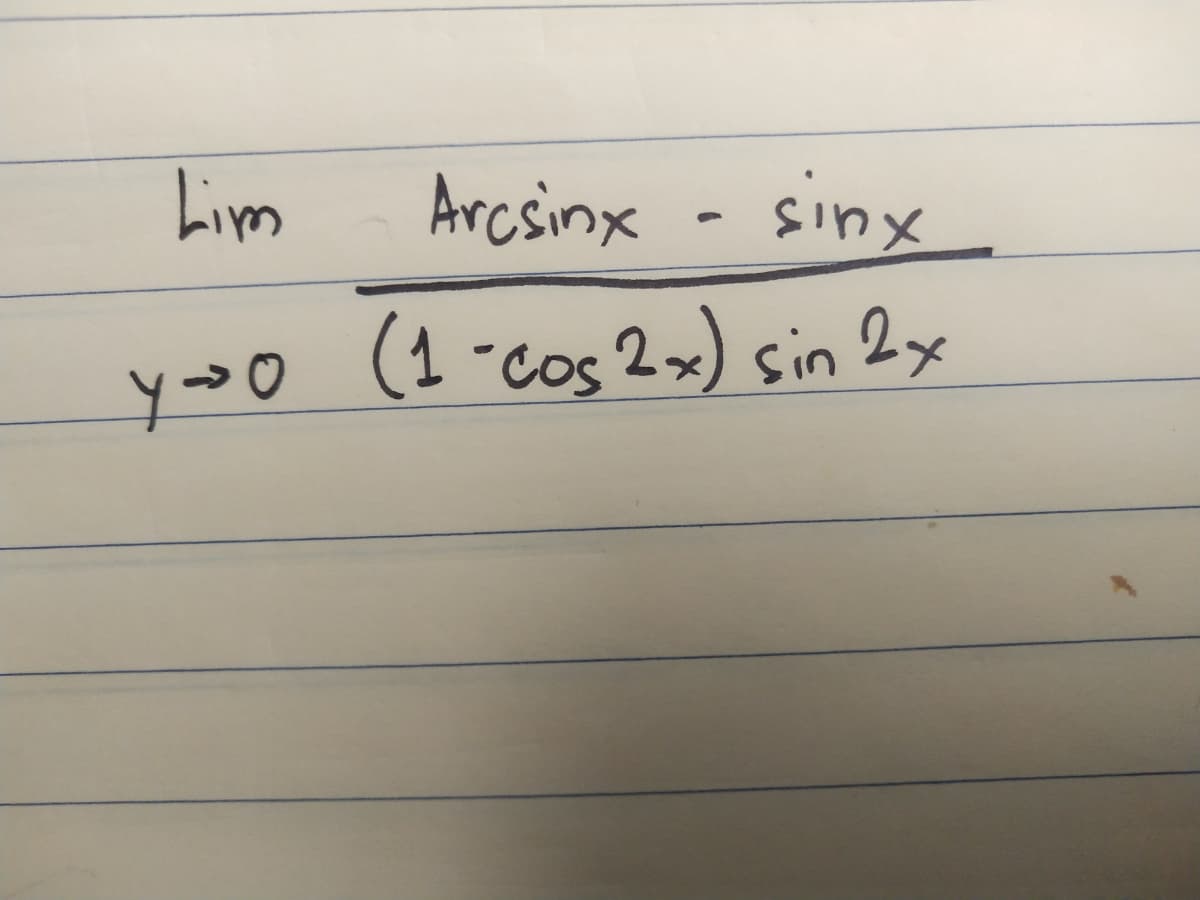 Lim Arcsinx - sinx
y→0 (1 - cos 2x) sin 2x